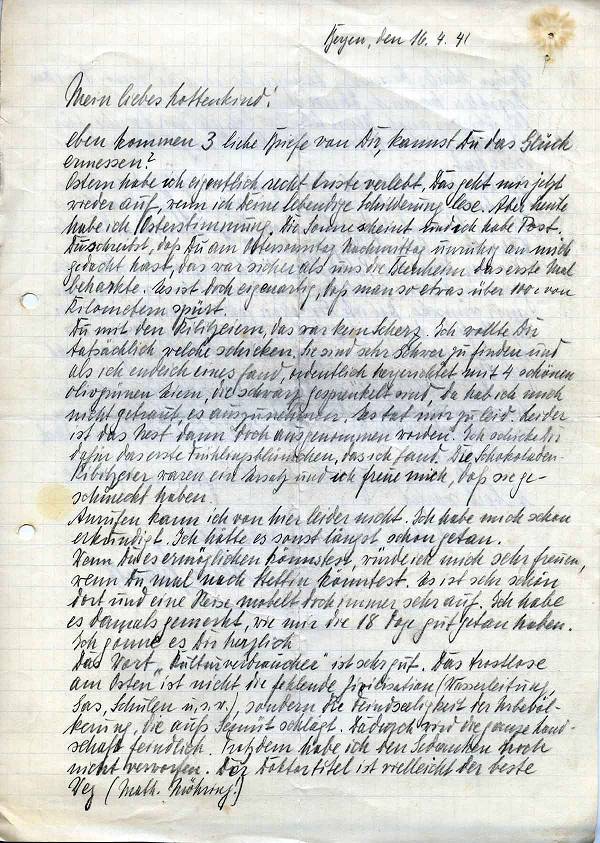 den 16. 4. 41
Mein liebes Lottenkind!
eben kommen 3 liebe Briefe von Dir, kannst Du das Glück
ermessen?
Ostern habe ich eigentlich recht triste verlebt, das geht mir jetzt
wieder auf, wenn ich Deine lebendige Schilderung lese. Aber heute
habe ich Osterstimmung. Die Sonne scheint und ich habe Post.
Du schreibst, daß Du am Ostersonntag Nachmittag unruhig an mich
gedacht hast, das war sicher als uns die das erste Mal
beharkte. Es ist doch eigenartig, daß man so etwas über von
Kilometern spürt.
Du mit den Kibitzeiern, das war kein Scherz. Ich wollte Dir
tatsächlich welche schicken, sie sind sehr schwer zu finden und
als ich endlich eines fand, ordentlich hergerichtet mit 4 schönen
olivgrünen Eiern, die schwarz gesprenkelt sind, da hab ich mich
nicht getraut, es auszunehmen. Es tat mir zu leid. Leider
ist das Nest dann doch ausgenommen worden. Ich schicke Dir
dafür das erste Frühlingsblümchen, das ich fand. Die Schokoladen-
Kibitzeier waren ein Ersatz und ich freue mich, daß sie ge-
schmeckt haben.
Anrufen kann ich von hier leider nicht. Ich habe mich schon
erkundigt. Ich hätte es sonst längst schon getan.
Wenn Du es ermöglichen könntest, würde ich mich sehr freuen,
wenn Du mal nach Stettin könntest. Es ist sehr schön
dort und eine Reise möbelt doch immer sehr auf. Ich habe
es damals gemerkt, wie mir die 18 Tage gut getan haben.
Ich gönne es Dir herzlich
Das Wort „Kulturverbraucher" ist sehr gut. Das trostlose
am Osten ist nicht die fehlende Zivilisation (Wasserleitung,
Gas, Schulen u.s.w.), sondern die Feindseligkeit der Urbevöl-
kerung, die aufs Gemüt schlägt. Dadurch wird die ganze Land-
schaft feindlich. Trotzdem habe ich den Gedanken noch
nicht verworfen. Der Doktortitel ist vielleicht der beste
Weg (Math. Möhring!)